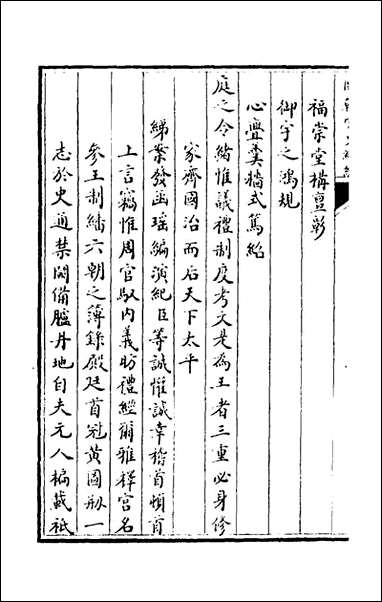 福崇堂構亶彰
御宇之鴻規
心疊羹牆式篤紹
庭之令緒惟議禮制度考文是為王者三重必身修
家齊國治而后天下太平
綈槧發函瑶編演紀臣等誠惟誠幸稽首頓首
上言竊惟周官馭內義昉禮經爾雅釋宮名
參王制繙六朝之簿錄殿廷首冠黃圖剏一
志於史通禁闕備臚丹地自夫元人楄載祗